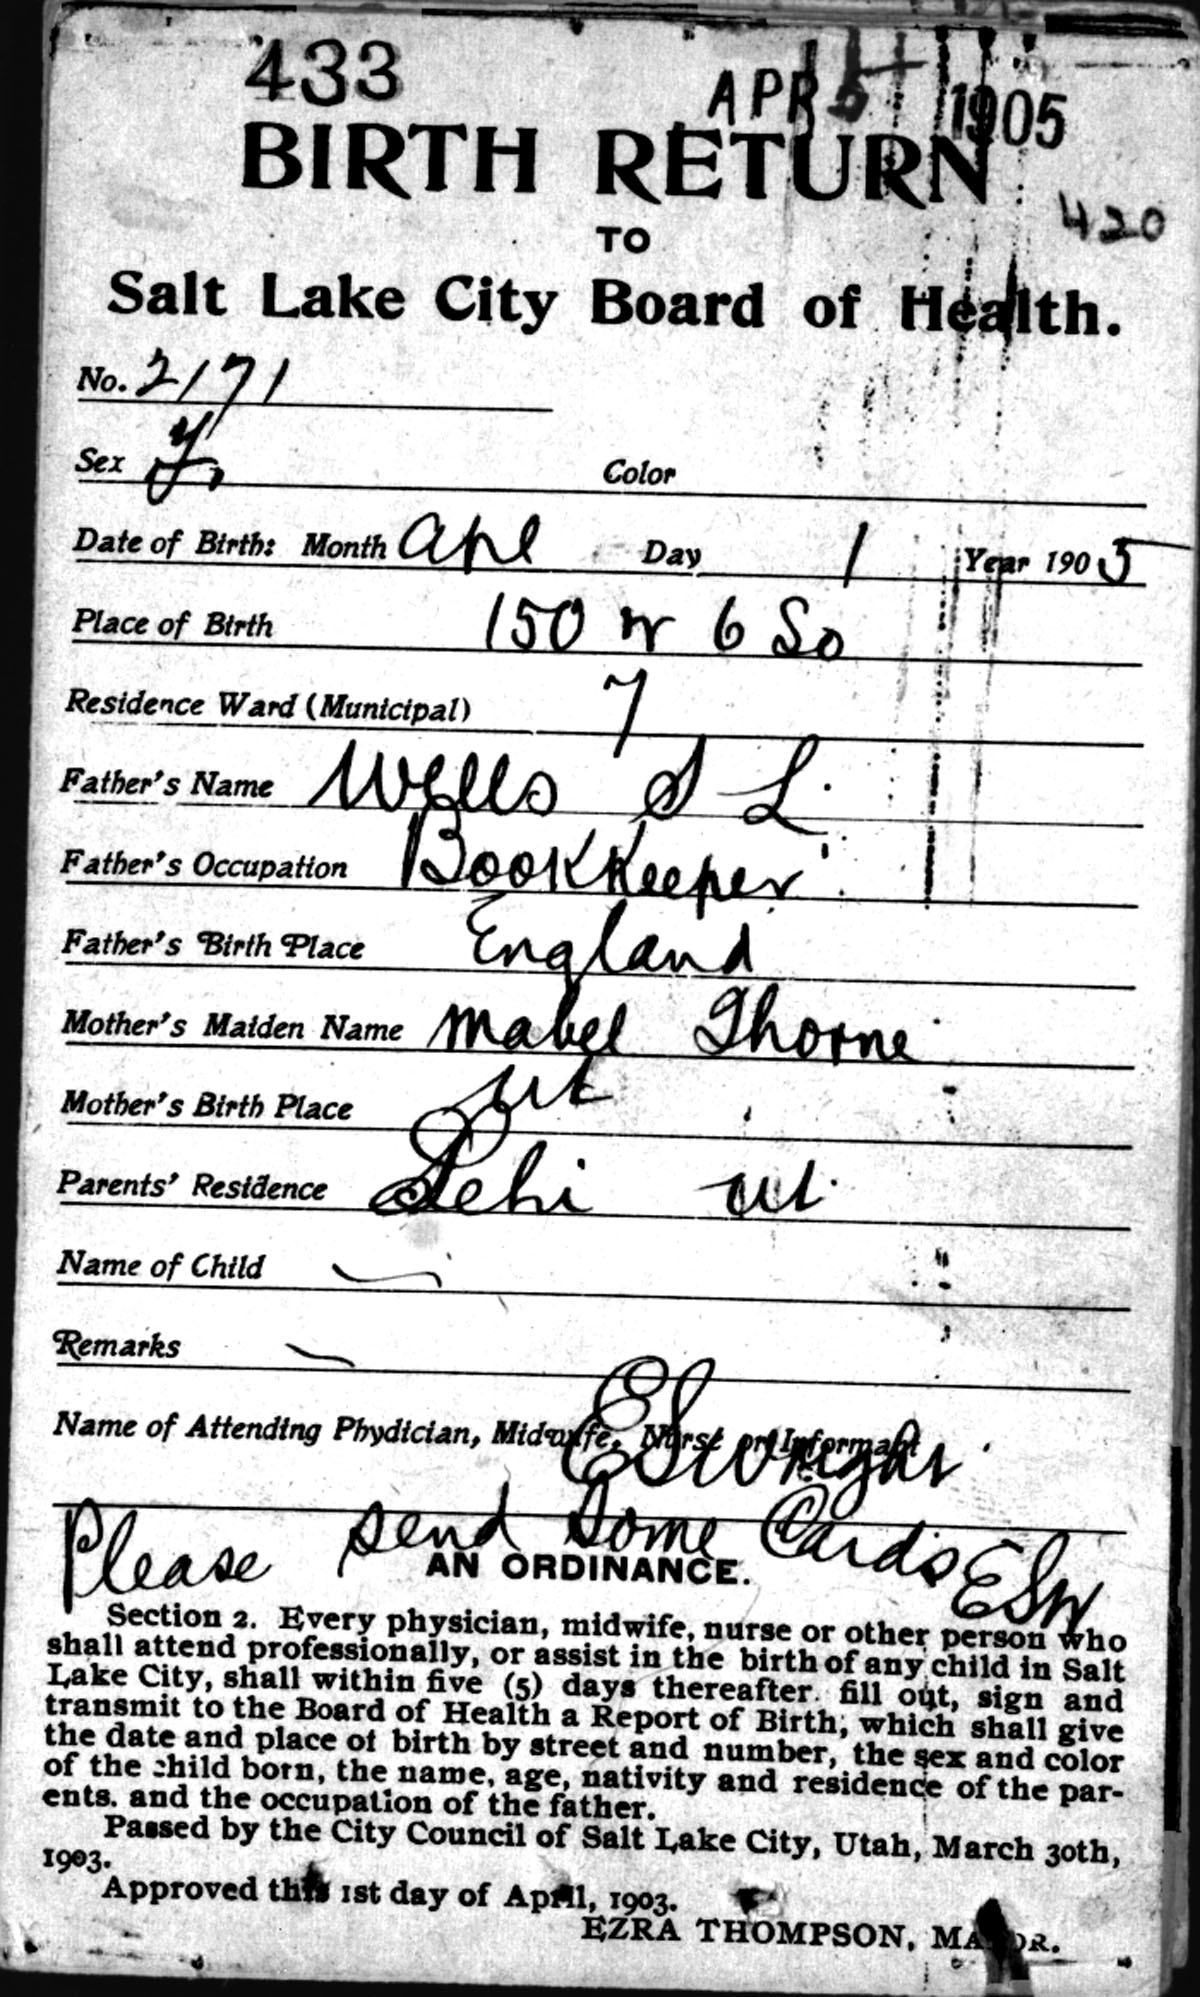 433 APR 5 1905
BIRTH RETURN
420
TO
Salt Lake City Board of Health.
No. 2171
Sex F. Color
Date of Birth: Month Apl Day 1 Year 1905
Place of Birth 150 W 6 So
Residence Ward (Municipal) 7
Father's Name Wells S L.
Father's Occupation BookKeeper
Father's Birth Place England
Mother's Maiden Name Mabel Thorne
Mother's Birth Place Ut
Parents' Residence Lehi Ut.
Name of Child
Remarks
Name of Attending Phydician, Midwife, Nurse or Informant
ESWright
Please send Some Cards ESW
AN ORDINANCE.
Section 2. Every physician, midwife, nurse or other person who
shall attend professionally, or assist in the birth of any child in Salt
Lake City, shall within five (5) days thereafter. fill out, sign and
transmit to the Board of Health a Report of Birth, which shall give
the date and place of birth by street and number, the sex and color
of the child born, the name, age, nativity and residence of the par-
ents. and the occupation of the father.
Passed by the City Council of Salt Lake City, Utah, March 30th,
1903.
Approved this 1st day of April, 1903.
EZRA THOMPSON, MAYOR.